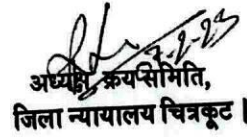 7-2-23
अध्यक्ष, क्रय समिति,
जिला न्यायालय चित्रकूट।